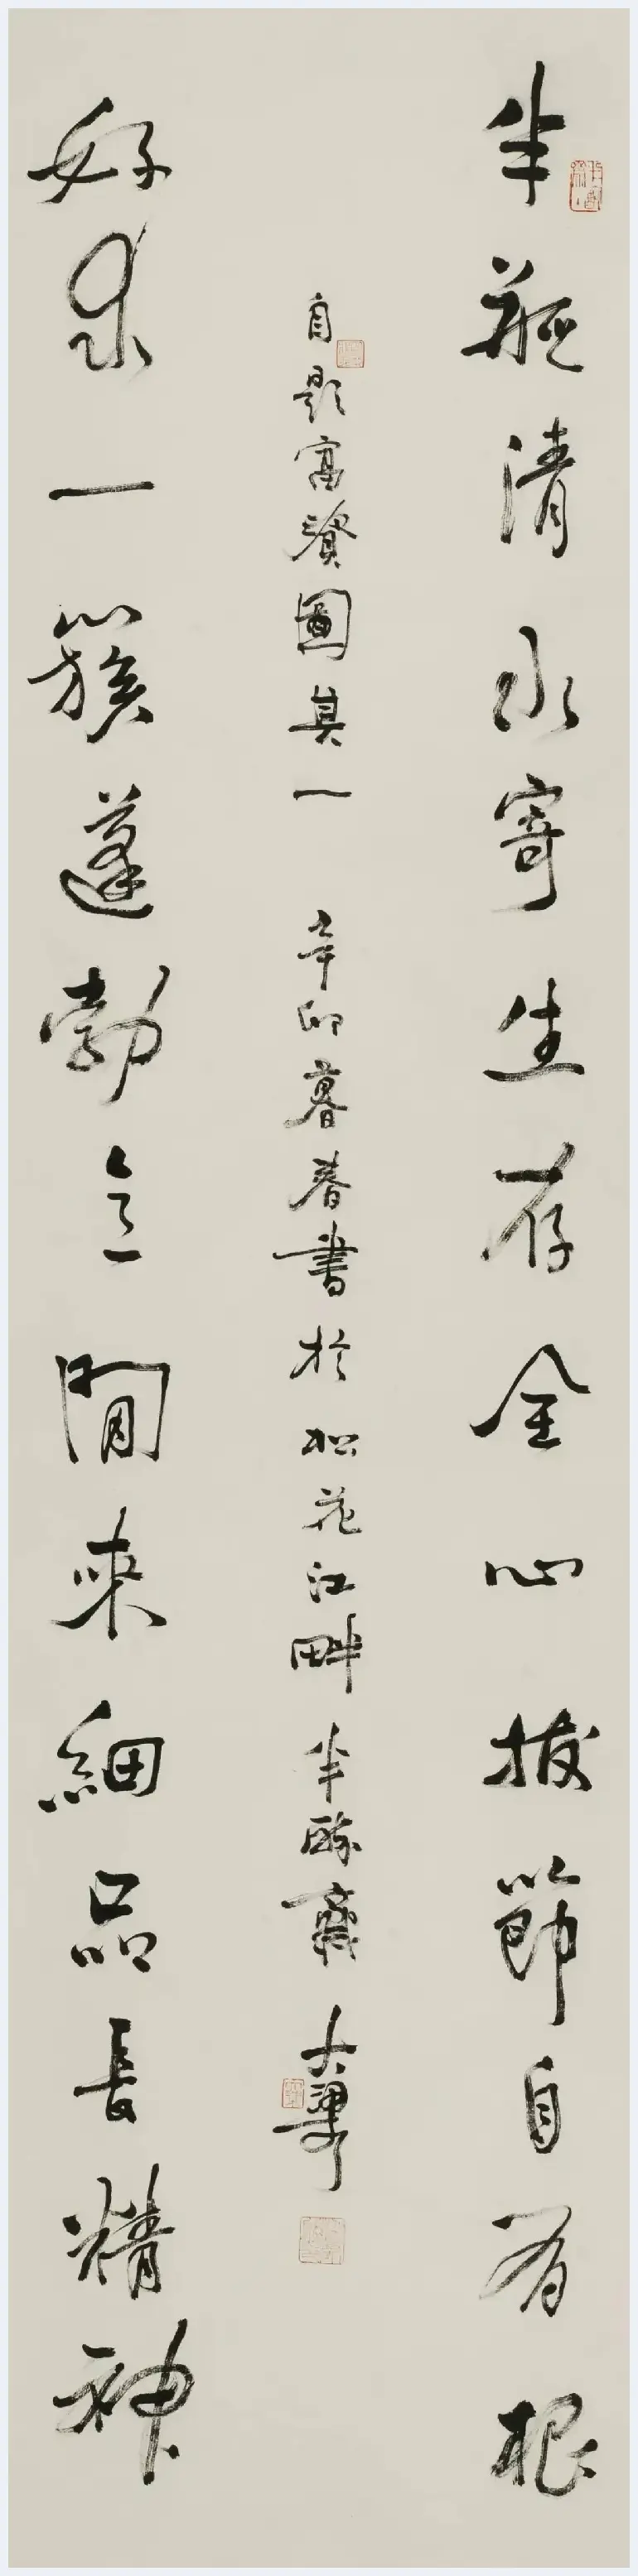 半瓶清水寄生存全心拔節自有根
好一簇蓬勃意閒來細品長精神
自題富圖其一 辛卯暮春書於松花江畔半齋 大